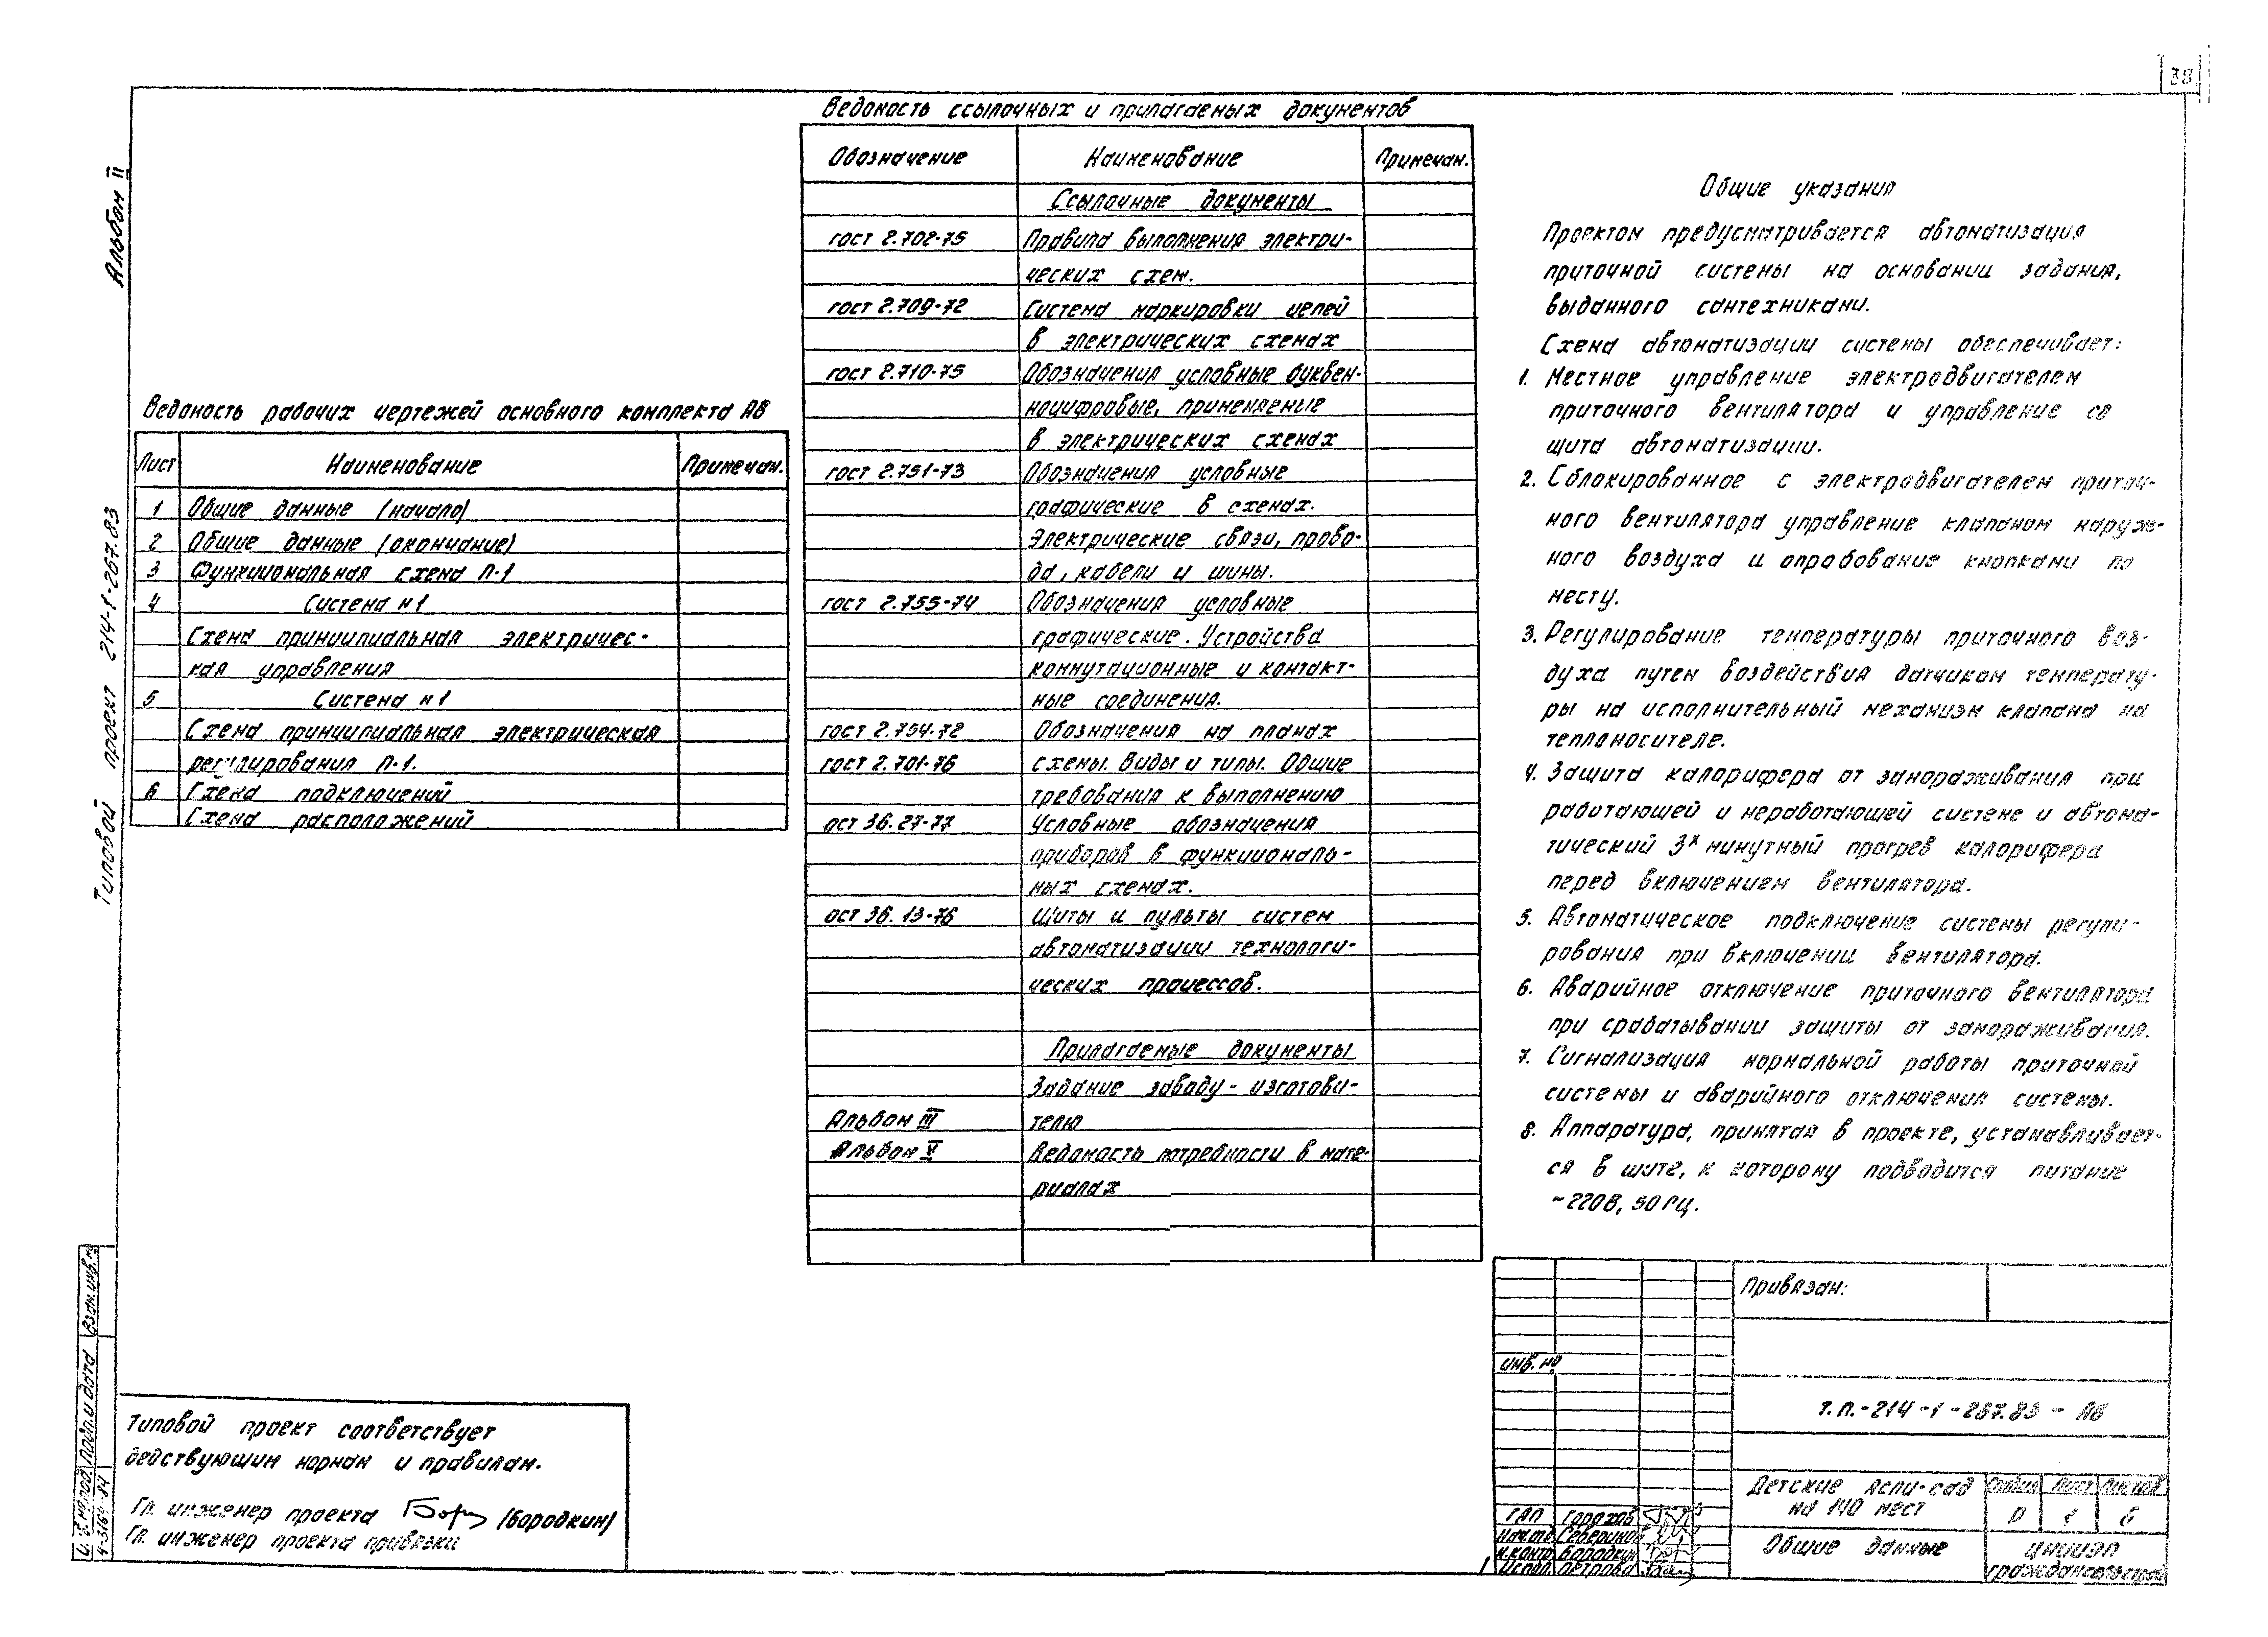 38
Альбом II
Типовой проект 214-1-267.83
Ведомость рабочих чертежей основного комплекта АВ
Лист Наименование Примечан.
1 Общие данные (начало)
2 Общие данные (окончание)
3 Функциональная схема П-1
4 Система №1
Схема принципиальная электричес-
кая управления
5 Система №1
Схема принципиальная электрическая
регулирования П-1.
6 Схема подключений
Схема расположений
Ведомость ссылочных и прилагаемых документов
Обозначение Наименование Примечан.
Ссылочные документы
гост 2.702-75 Правила выполнения электри-
ческих схем.
гост 2.709-72 Система маркировки цепей
в электрических схемах
гост 2.710-75 Обозначения условные буквен-
ноцифровые, применяемые
в электрических схемах
гост 2.751-73 Обозначения условные
графические в схемах.
Электрические связи, прово-
да, кабели и шины.
гост 2.755-74 Обозначения условные
графические. Устройства
коммутационные и контакт-
ные соединения.
гост 2.754-72 Обозначения на планах
гост 2.701-76 схемы. Виды и типы. Общие
требования к выполнению
ост 36.27-77 Условные обозначения
приборов в функциональ-
ных схемах.
ост 36.13-76 Щиты и пульты систем
автоматизации технологи-
ческих процессов.
Прилагаемые документы
Задание заводу-изготови-
Альбом III телю
Альбом V Ведомость потребности в мате-
риалах
Общие указания
Проектом предусматривается автоматизация
приточной системы на основании задания,
выданного сантехниками.
Схема автоматизации системы обеспечивает:
1. Местное управление электродвигателем
приточного вентилятора и управление со
щита автоматизации.
2. Сблокированное с электродвигателем приточ-
ного вентилятора управление клапаном наруж-
ного воздуха и опробование кнопками по
месту.
3. Регулирование температуры приточного воз-
духа путем воздействия датчиком температу-
ры на исполнительный механизм клапана на
теплоносителе.
4. Защита калорифера от замораживания при
работающей и неработающей системе и автома-
тический 3х минутный прогрев калорифера
перед включением вентилятора.
5. Автоматическое подключение системы регули-
рования при включении вентилятора.
6. Аварийное отключение приточного вентилятора
при срабатывании защиты от замораживания.
7. Сигнализация нормальной работы приточной
системы и аварийного отключения системы.
8. Аппаратура, принятая в проекте, устанавливает-
ся в щите, к которому подводится питание
~220В, 50 Гц.
Типовой проект соответствует
действующим нормам и правилам.
Гл. инженер проекта Бор (Бородкин)
Гл. инженер проекта привязки
Взам. инв. №
Подп. и дата
Инв. № под.
4-3164-84
Привязан:
инв. №
Т.П.-214-1-267.83-АВ
Детские ясли-сад
на 140 мест
Стадия Лист Листов
Р 1 6
Общие данные
ЦНИИЭП
граждансельстрой
ГАП Горохов
Нач.то Северинов
Н.контр Бородкин
Испол. Петрова